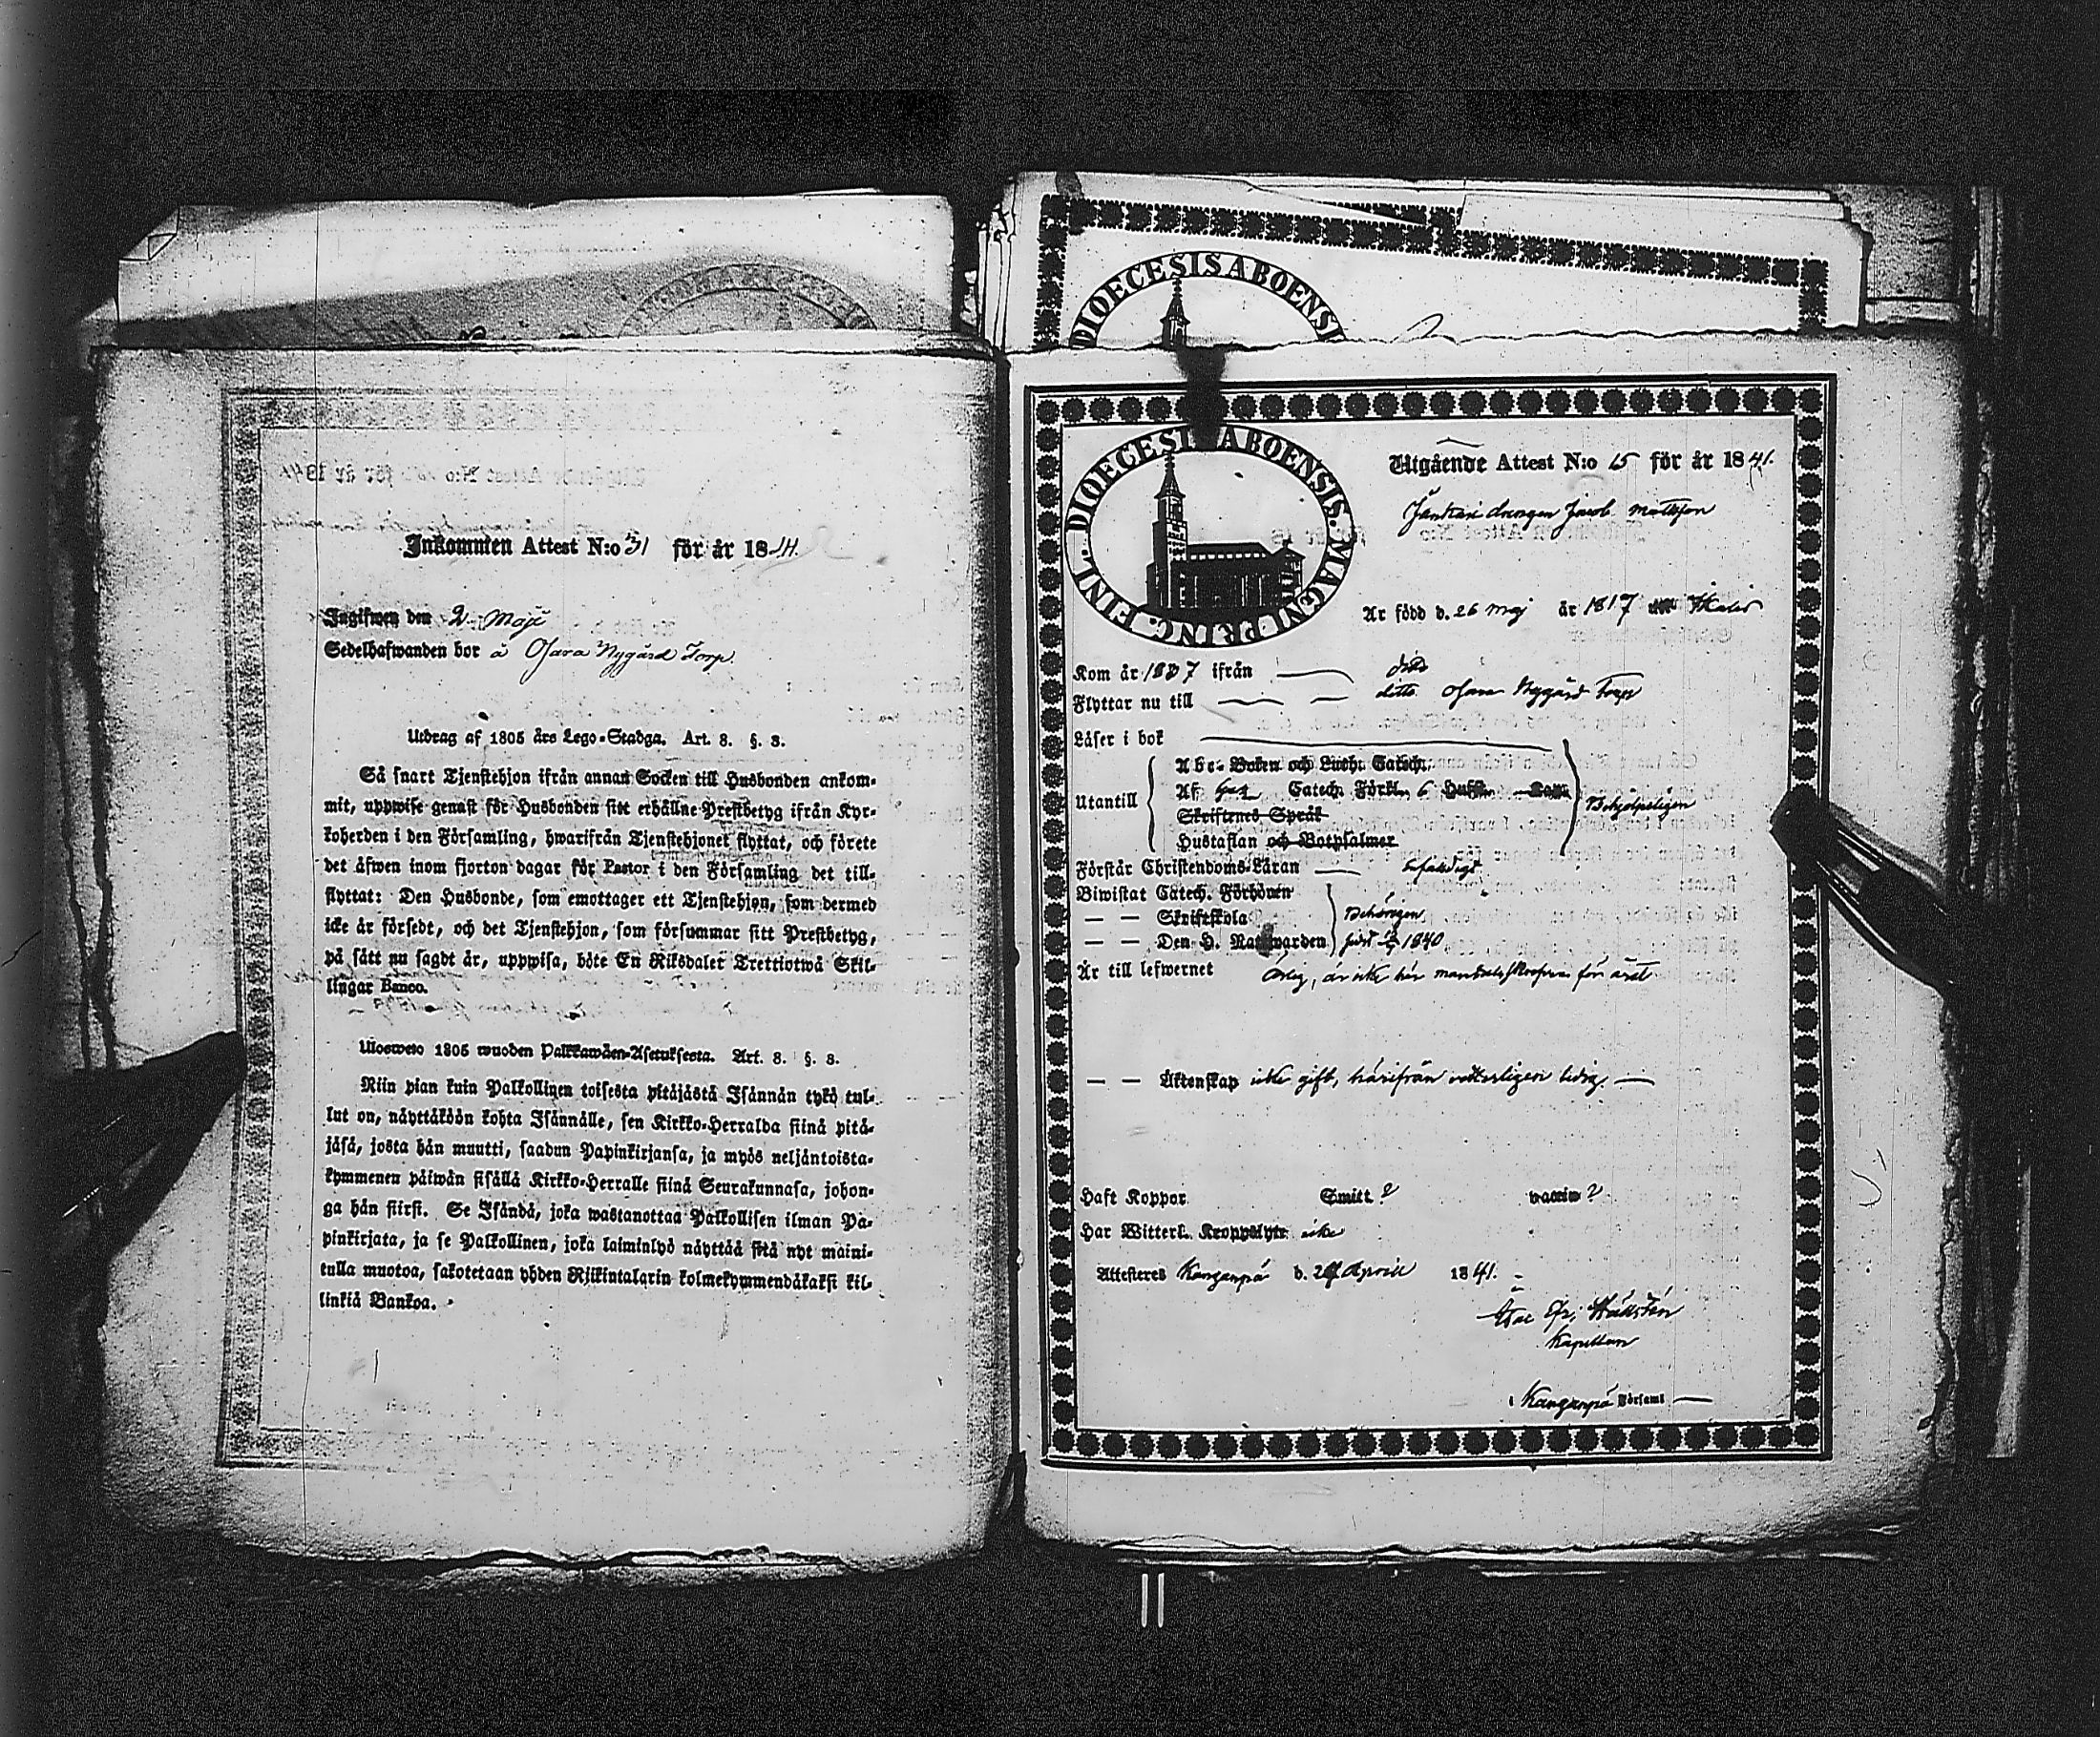 Inkommen Attest N:o 31 för år 1841.
Ingifwen den 2 Maji
Sedelhafwanden bor å Osara Nygård Torp.
Utdrag af 1805 års Lego-Stadga. Art. 8. §. 3.
Så snart Tjenstehjon ifrån annan Socken till Husbonden ankom-
mit, uppwise genast för Husbonden sitt erhållne Prestbetyg ifrån Kyr-
koherden i den Församling, hwarifrån Tjenstehjonet flyttat, och förete
det äfwen inom fjorton dagar för Pastor i den Församling det till-
flyttat: Den Husbonde, som emottager ett Tjenstehjon, som dermed
icke är försedt, och det Tjenstehjon, som försummar sitt Prestbetyg,
på sätt nu sagdt är, uppwisa, böte En Riksdaler Trettiotwå Skil-
lingar Banco.
Uloswelo 1805 wuoden Palkkawäen-Asetuksesta. Art. 8. §. 3.
Niin pian kuin Palkollinen toisesta pitäjästä Isännän tykö tul-
lut on, näyttäköön kohta Isännälle, sen Kirkko-Herralda siinä pitä-
jäsä, josta hän muutti, saadun Papinkirjansa, ja myös neljäntoista-
kymmenen päiwän sisällä Kirkko-Herralle siinä Seurakunnasa, johon-
ga hän siirsi. Se Isändä, joka wastanottaa Palkollisen ilman Pa-
pinkirjata, ja se Palkollinen, joka laiminlyö näyttää sitä nyt maini-
tulla muotoa, sakotetaan yhden Riikintalarin kolmekymmendäkaksi kil-
linkiä Bankoa.
DIOECESIS ABOENSI
DIOECESIS ABOENSIS. MAGNI PRINC. FINL.
Utgående Attest N:o 15 för år 1841.
drängen Jacob Mattsson
Är född d. 26 Maj år 1817
Kom år 1837 ifrån dito
Flyttar nu till ditto Osara Nygård Torp
Läser i bok
Abc-Boken och Luth. Catech.
Utantill Af Catech. Förkl. 6 Hufst. Behjelpeligen
Skriftenes Språk
Hustaflan och Botpsalmer
Förstår Christendoms-Läran enfaldigt
Biwistat Catech. Förhören
— — Skriftskola Behörigen
— — Den H. Nattwarden 1840
Är till lefwernet Ärlig, är icke här mantalsskrefwen för året
— — Äktenskap icke gift, härifrån witterligen ledig. —
Haft Koppor Smitt. ? vaccin ?
Har Witterl. Kroppslyte icke
Attesteras Kangaspä d. 24 April 1841.
Kapellan
i Kangaspä Församl —